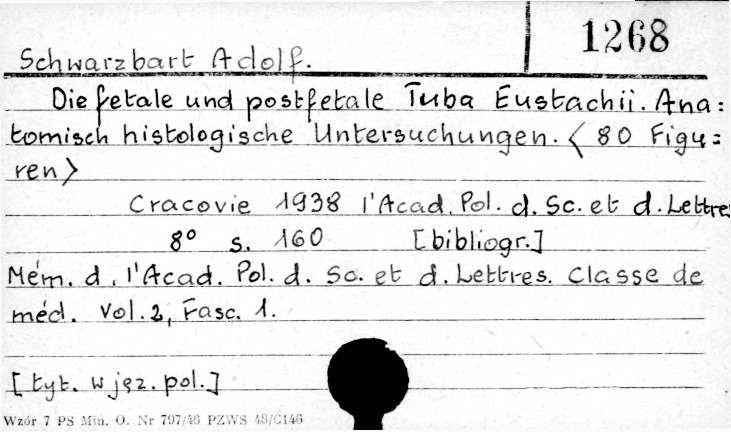 1268
Schwarzbart Adolf.
Die fetale und postfetale Tuba Eustachii. Ana:
tomisch histologische Untersuchungen. < 80 Figu=
ren >
Cracovie 1938 l'Acad. Pol. d. Sc. et d. Lettres
8° s. 160 [bibliogr.]
Mém. d. l'Acad. Pol. d. Sc. et d. Lettres. Classe de
méd. Vol. 2, Fasc. 1.
[tyt. w jęz. pol.]
Wzór 7 PS Min. O. Nr 797/46 PZWS 48/C146